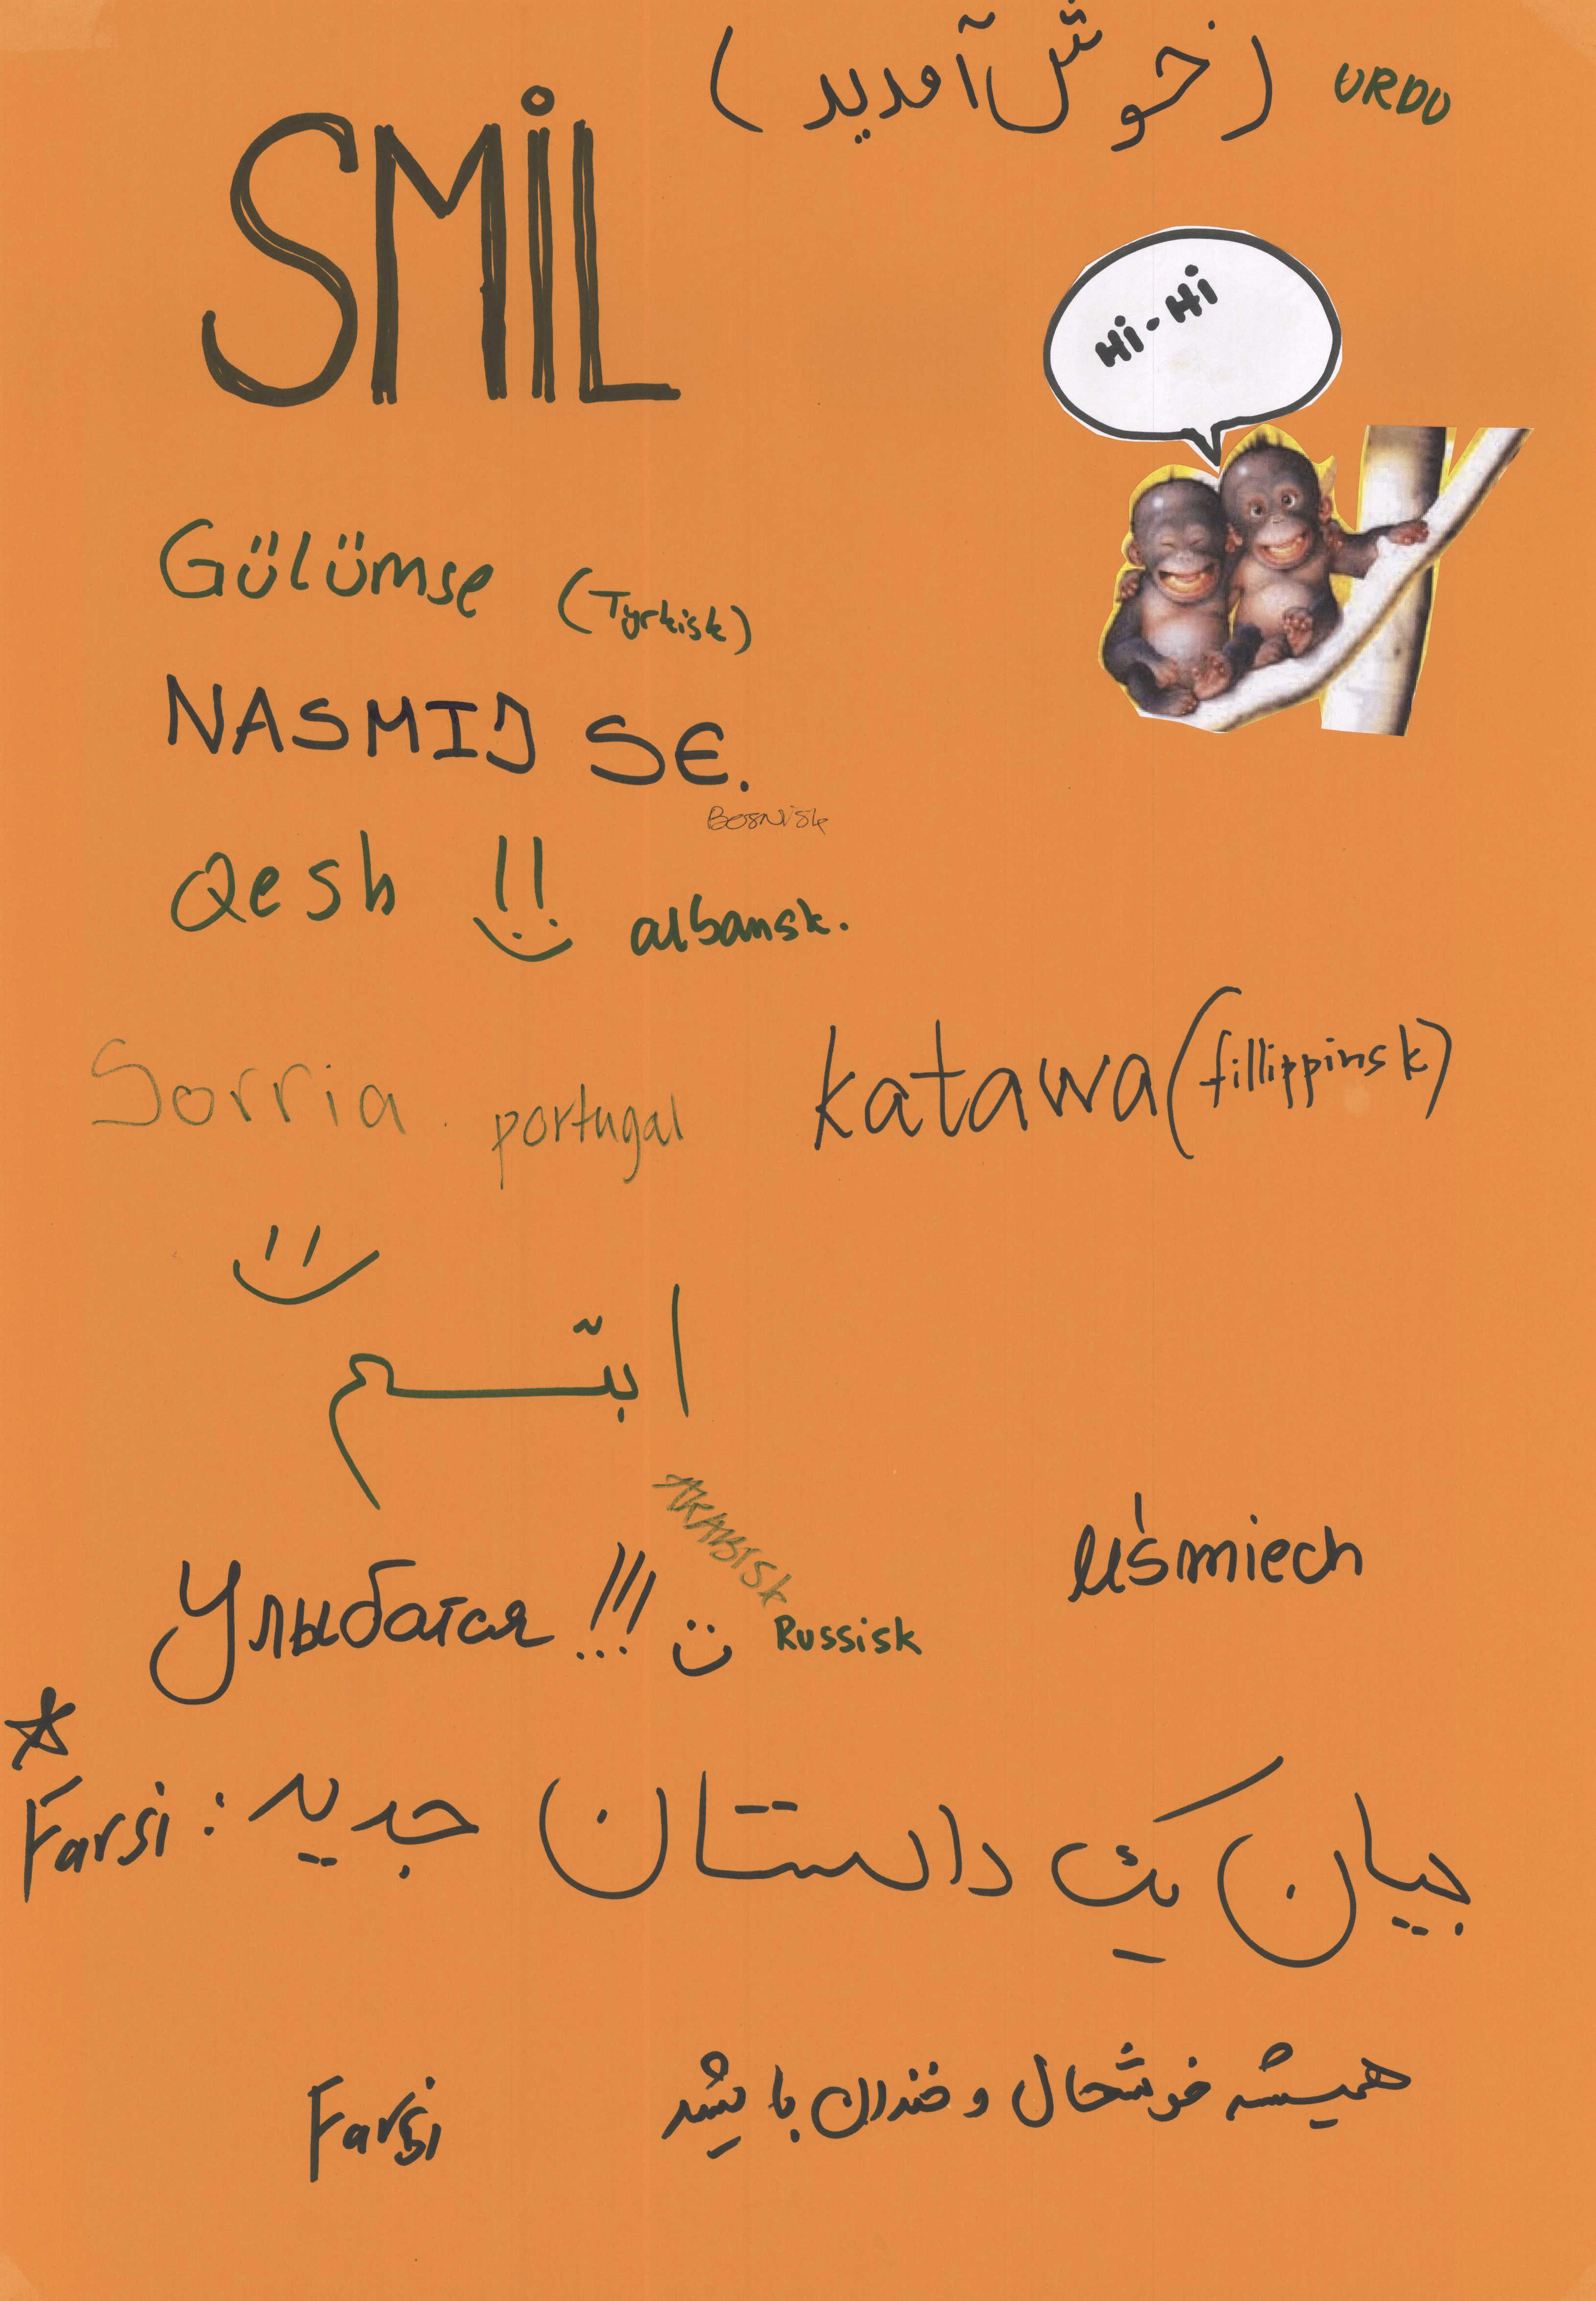 (خوش آمدید) URDU
SMiL
Hi-Hi
Gülümse (Tyrkisk)
NASMIJ SE.
BosNisk
Qesh !! albansk.
Sorria. portugal
katawa (fillippinsk)
ابتسم
ARABISK
uśmiech
Улыбатся !!! Russisk
Farsi: بیان یک داستان جدید
Farsi همیشه خوشحال و خندان باشید